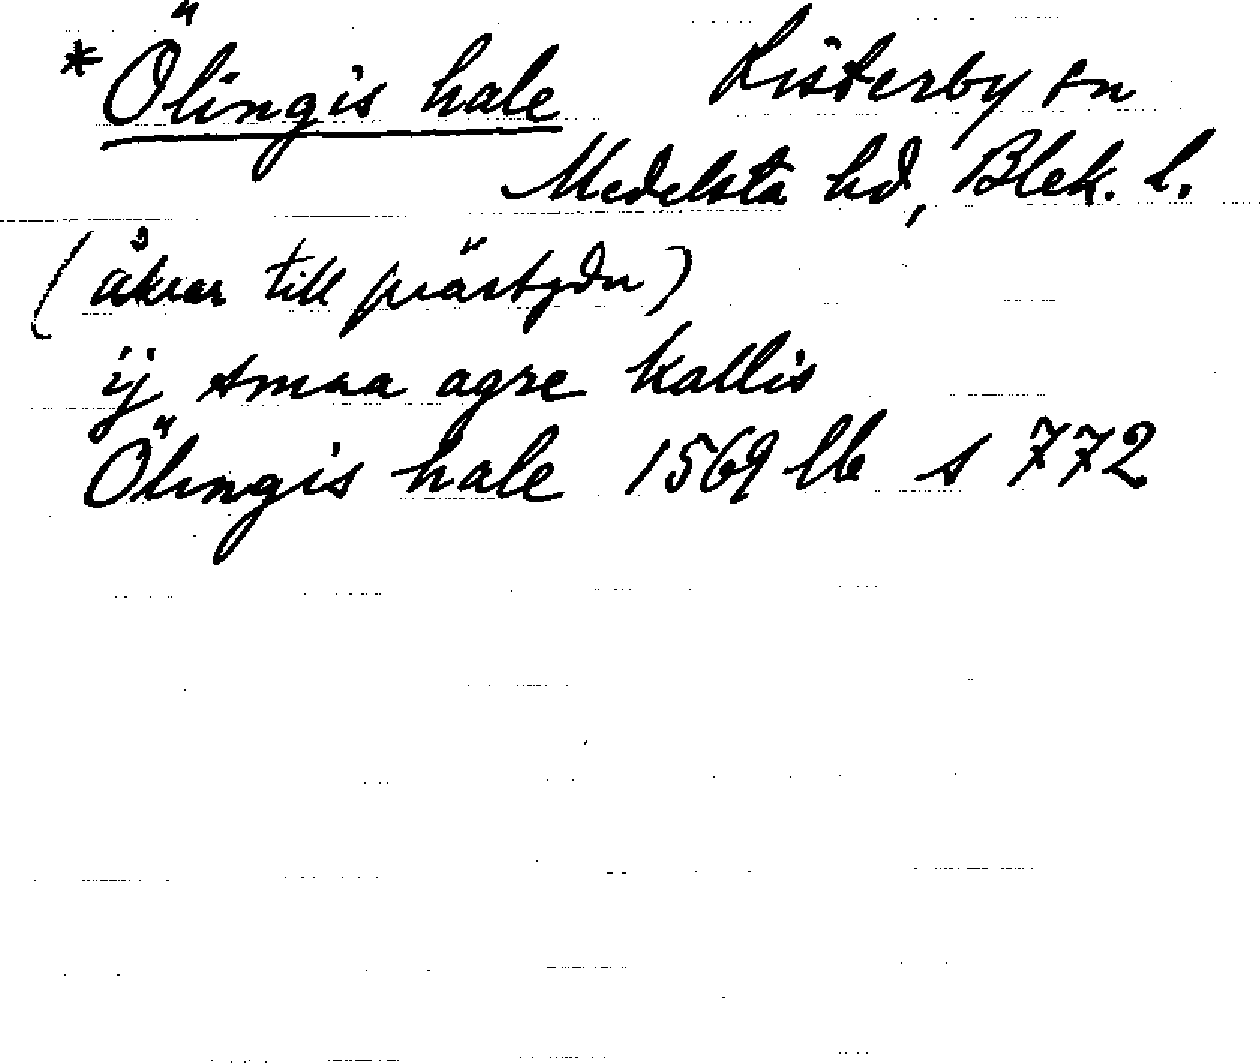 *Ölingis hale Listerby sn
Medelsta hd, Blek. l.
(åkrar till prästgdn)
ij smaa agre kallis
Ölingis hale 1569 lb s 772